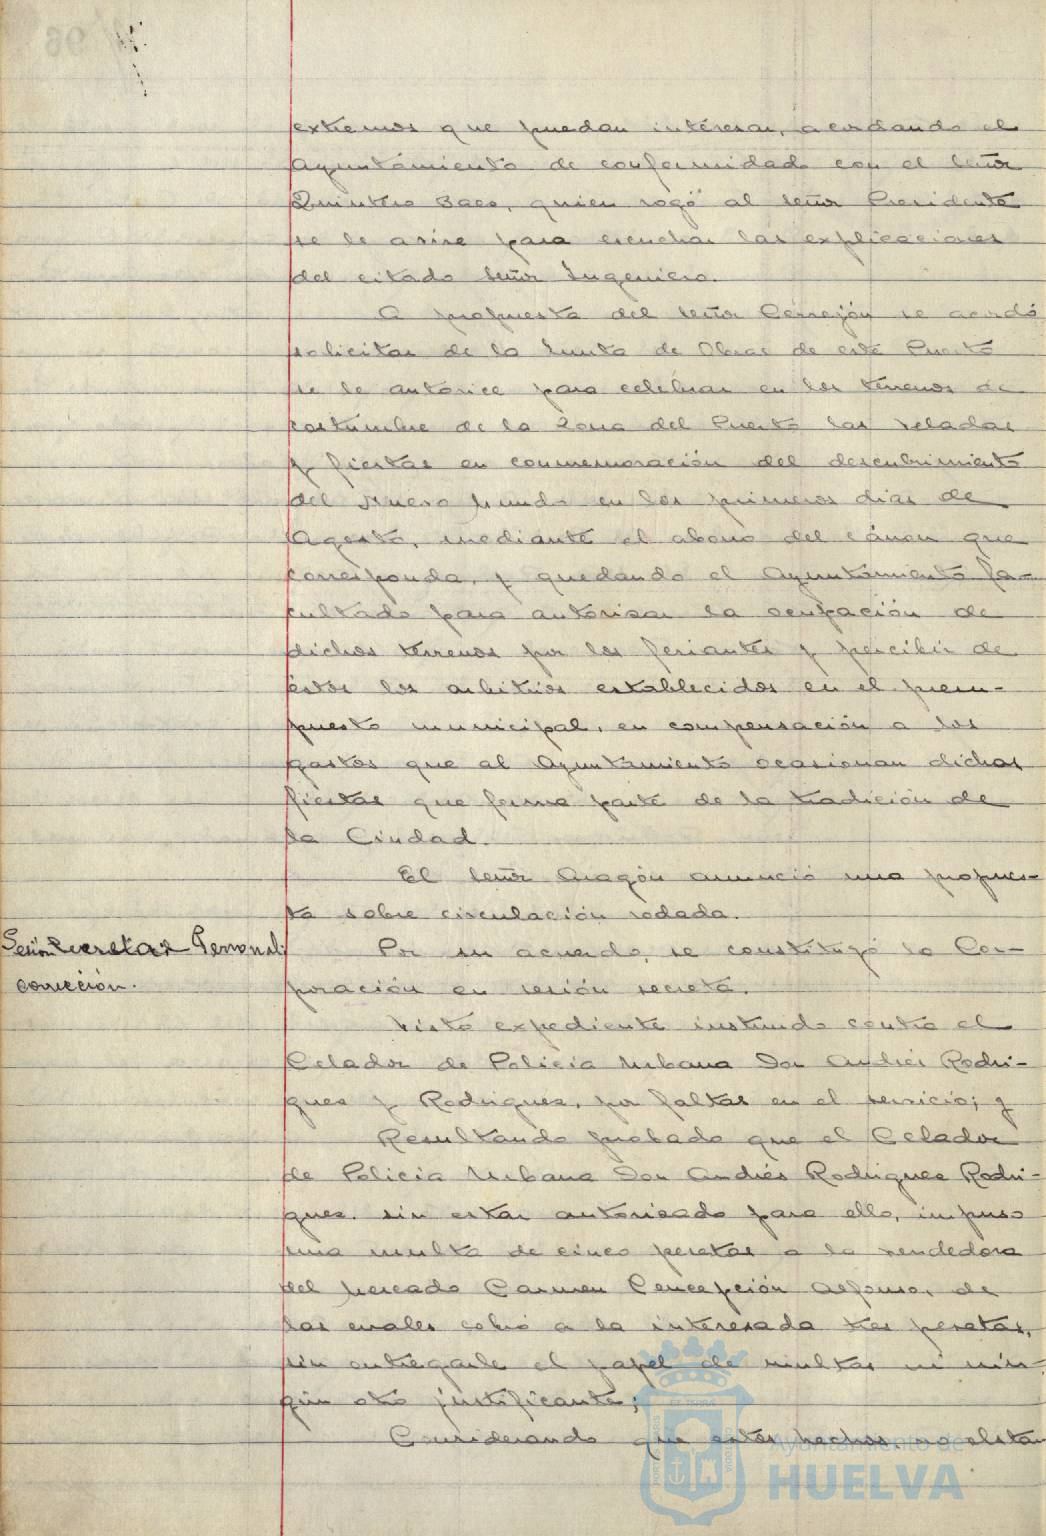 extremos que puedan interesar, acordando el
Ayuntamiento de conformidad con el señor
Quintero Baez, quien rogó al señor Presidente
se le avise para escuchar las explicaciones
del citado señor Ingeniero.
A propuesta del señor Cerrejón se acordó
solicitar de la Junta de Obras de este Puerto
se le autorice para celebrar en los terrenos de
costumbre de la Zona del Puerto las veladas
y fiestas en conmemoración del descubrimiento
del Nuevo Mundo en los primeros dias de
Agosto, mediante el abono del cánon que
corresponda, y quedando el Ayuntamiento fa-
cultado para autorizar la ocupación de
dichos terrenos por los feriantes y percibir de
éstos los arbitrios establecidos en el presu-
puesto municipal, en compensación a los
gastos que al Ayuntamiento ocasionan dichas
fiestas que forma parte de la tradición de
la Ciudad.
El señor Aragón anunció una propues-
ta sobre circulación rodada.
Sesión secreta: Personal;
corrección.
Por su acuerdo, se constituyó la Cor-
poración en sesión secreta.
Visto expediente instruido contra el
Celador de Policia Urbana Don Andrés Rodri-
guez y Rodriguez, por faltas en el servicio; y
Resultando probado que el Celador
de Policia Urbana Don Andrés Rodriguez Rodri-
guez, sin estar autorizado para ello, impuso
una multa de cinco pesetas a la vendedora
del Mercado Carmen Concepción Alfonso, de
las cuales cobró a la interesada tres pesetas,
sin entregarle el papel de multas ni nin-
gún otro justificante;
Considerando que estos hechos, no
Ayuntamiento de
HUELVA